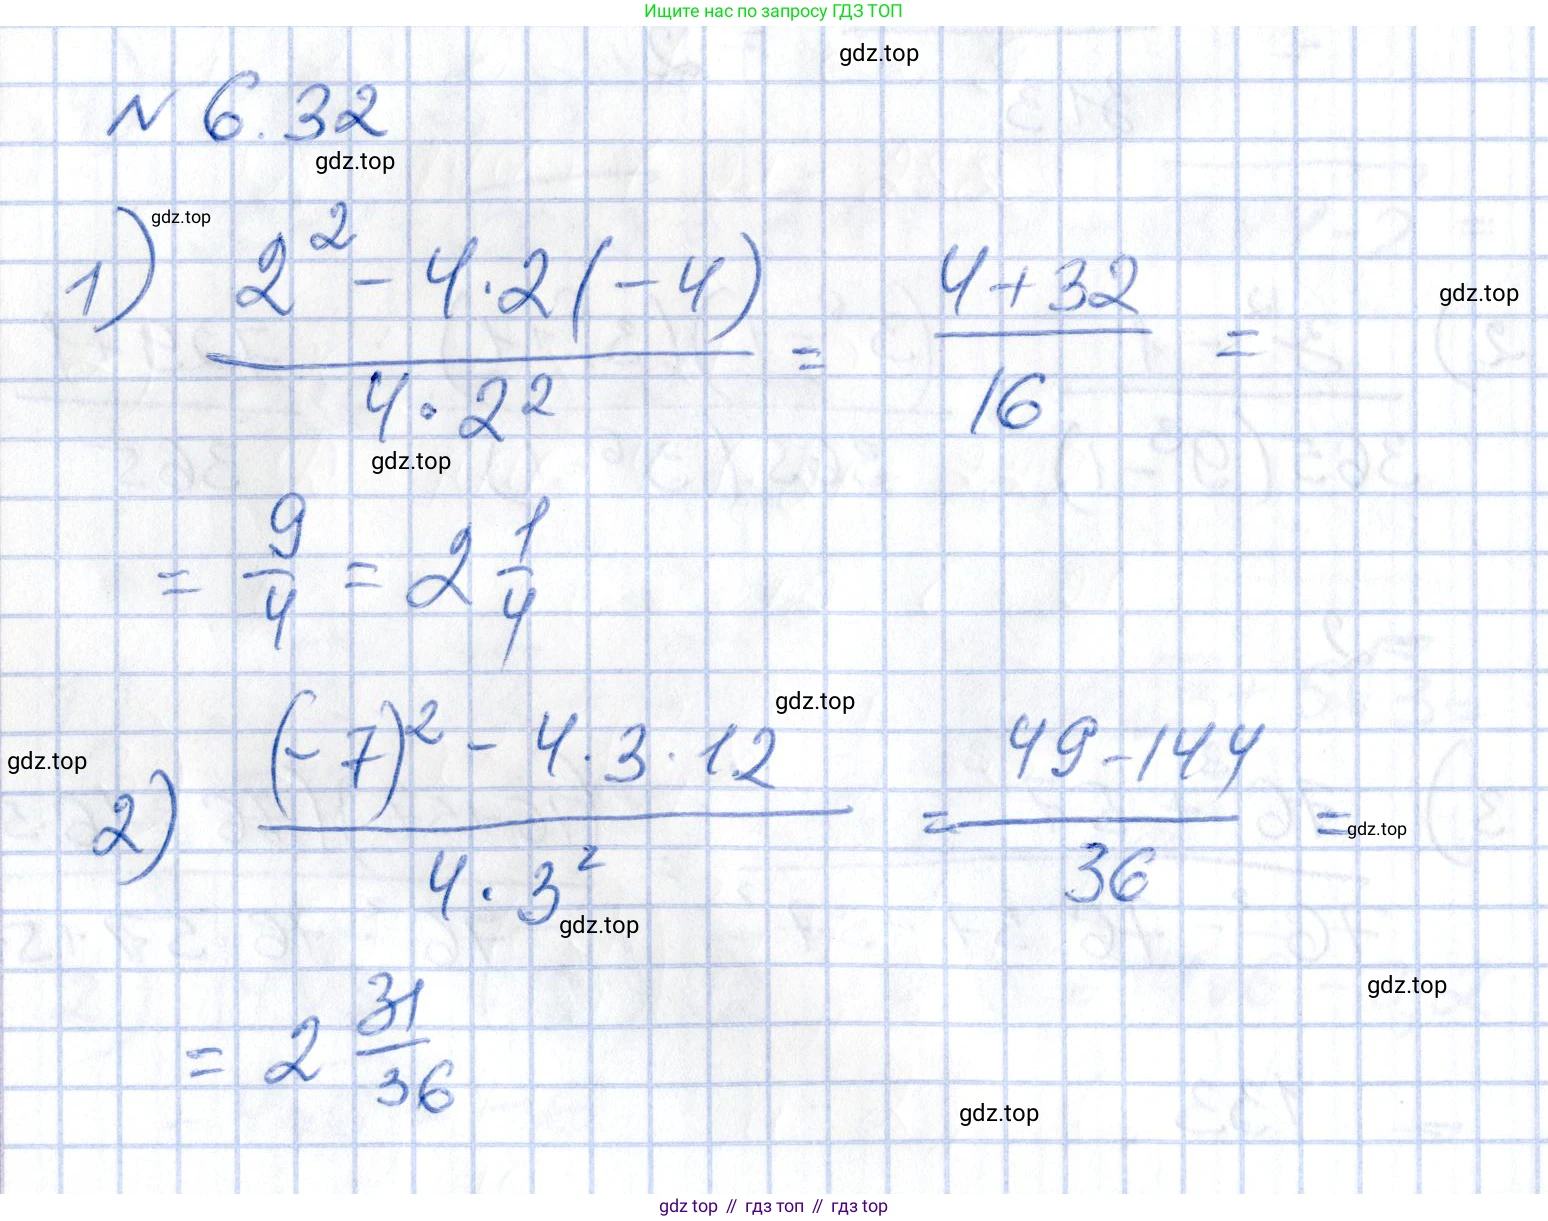 Ищите нас по запросу ГДЗ ТОП
gdz.top
N 6.32
gdz.top
gdz.top
1) (2² - 4·2(-4))/(4·2²) = (4+32)/16 =
gdz.top
gdz.top
= 9/4 = 2 1/4
gdz.top
gdz.top
2) ((-7)² - 4·3·12)/(4·3²) = (49-144)/36 =
gdz.top
gdz.top
gdz.top
= 2 31/36
gdz.top
gdz top // гдз топ // гдз top